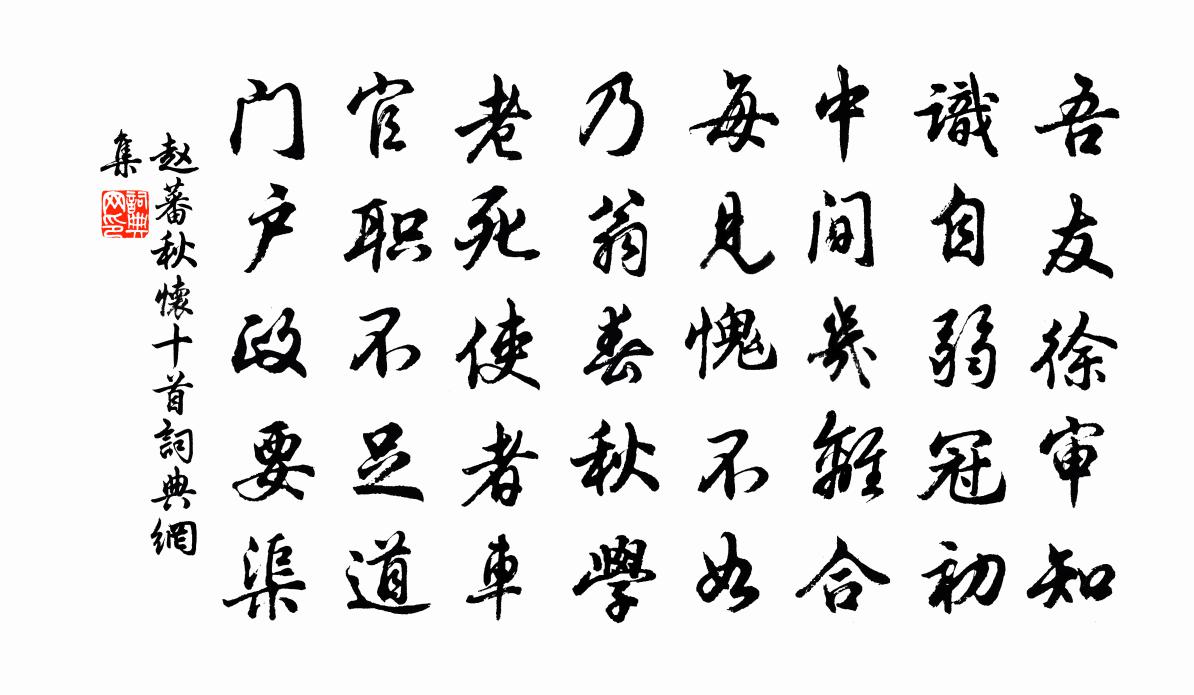 吾友徐审知
識自弱冠初
中间幾離合
每見愧不如
乃翁春秋學
老死使者車
官职不足道
门户政要渠
赵蕃秋懷十首詞典網
集
詞典網印